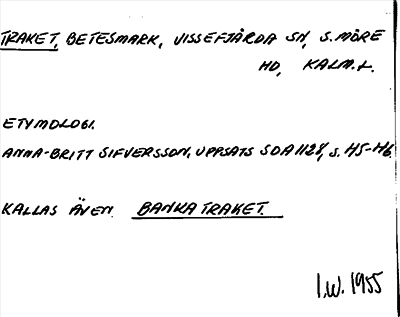 TRAKET, BETESMARK, VISSEFJÄRDA SN, S. MÖRE
HD, KALM.L.
ETYMOLOGI.
ANNA-BRITT SIFVERSSON, UPPSATS SDA 1128, S. 45-46.
KALLAS ÄVEN BANKATRAKET.
I.W. 1955